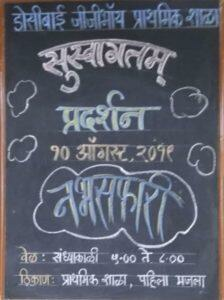 डोसीबाई जीजीभॉय प्राथमिक शाळा
सुस्वागतम्
प्रदर्शन
१० ऑगस्ट, २०१९
नभसफारी
वेळ: संध्याकाळी ५.०० ते ८.००
ठिकाण: प्राथमिक शाळा, पहिला मजला